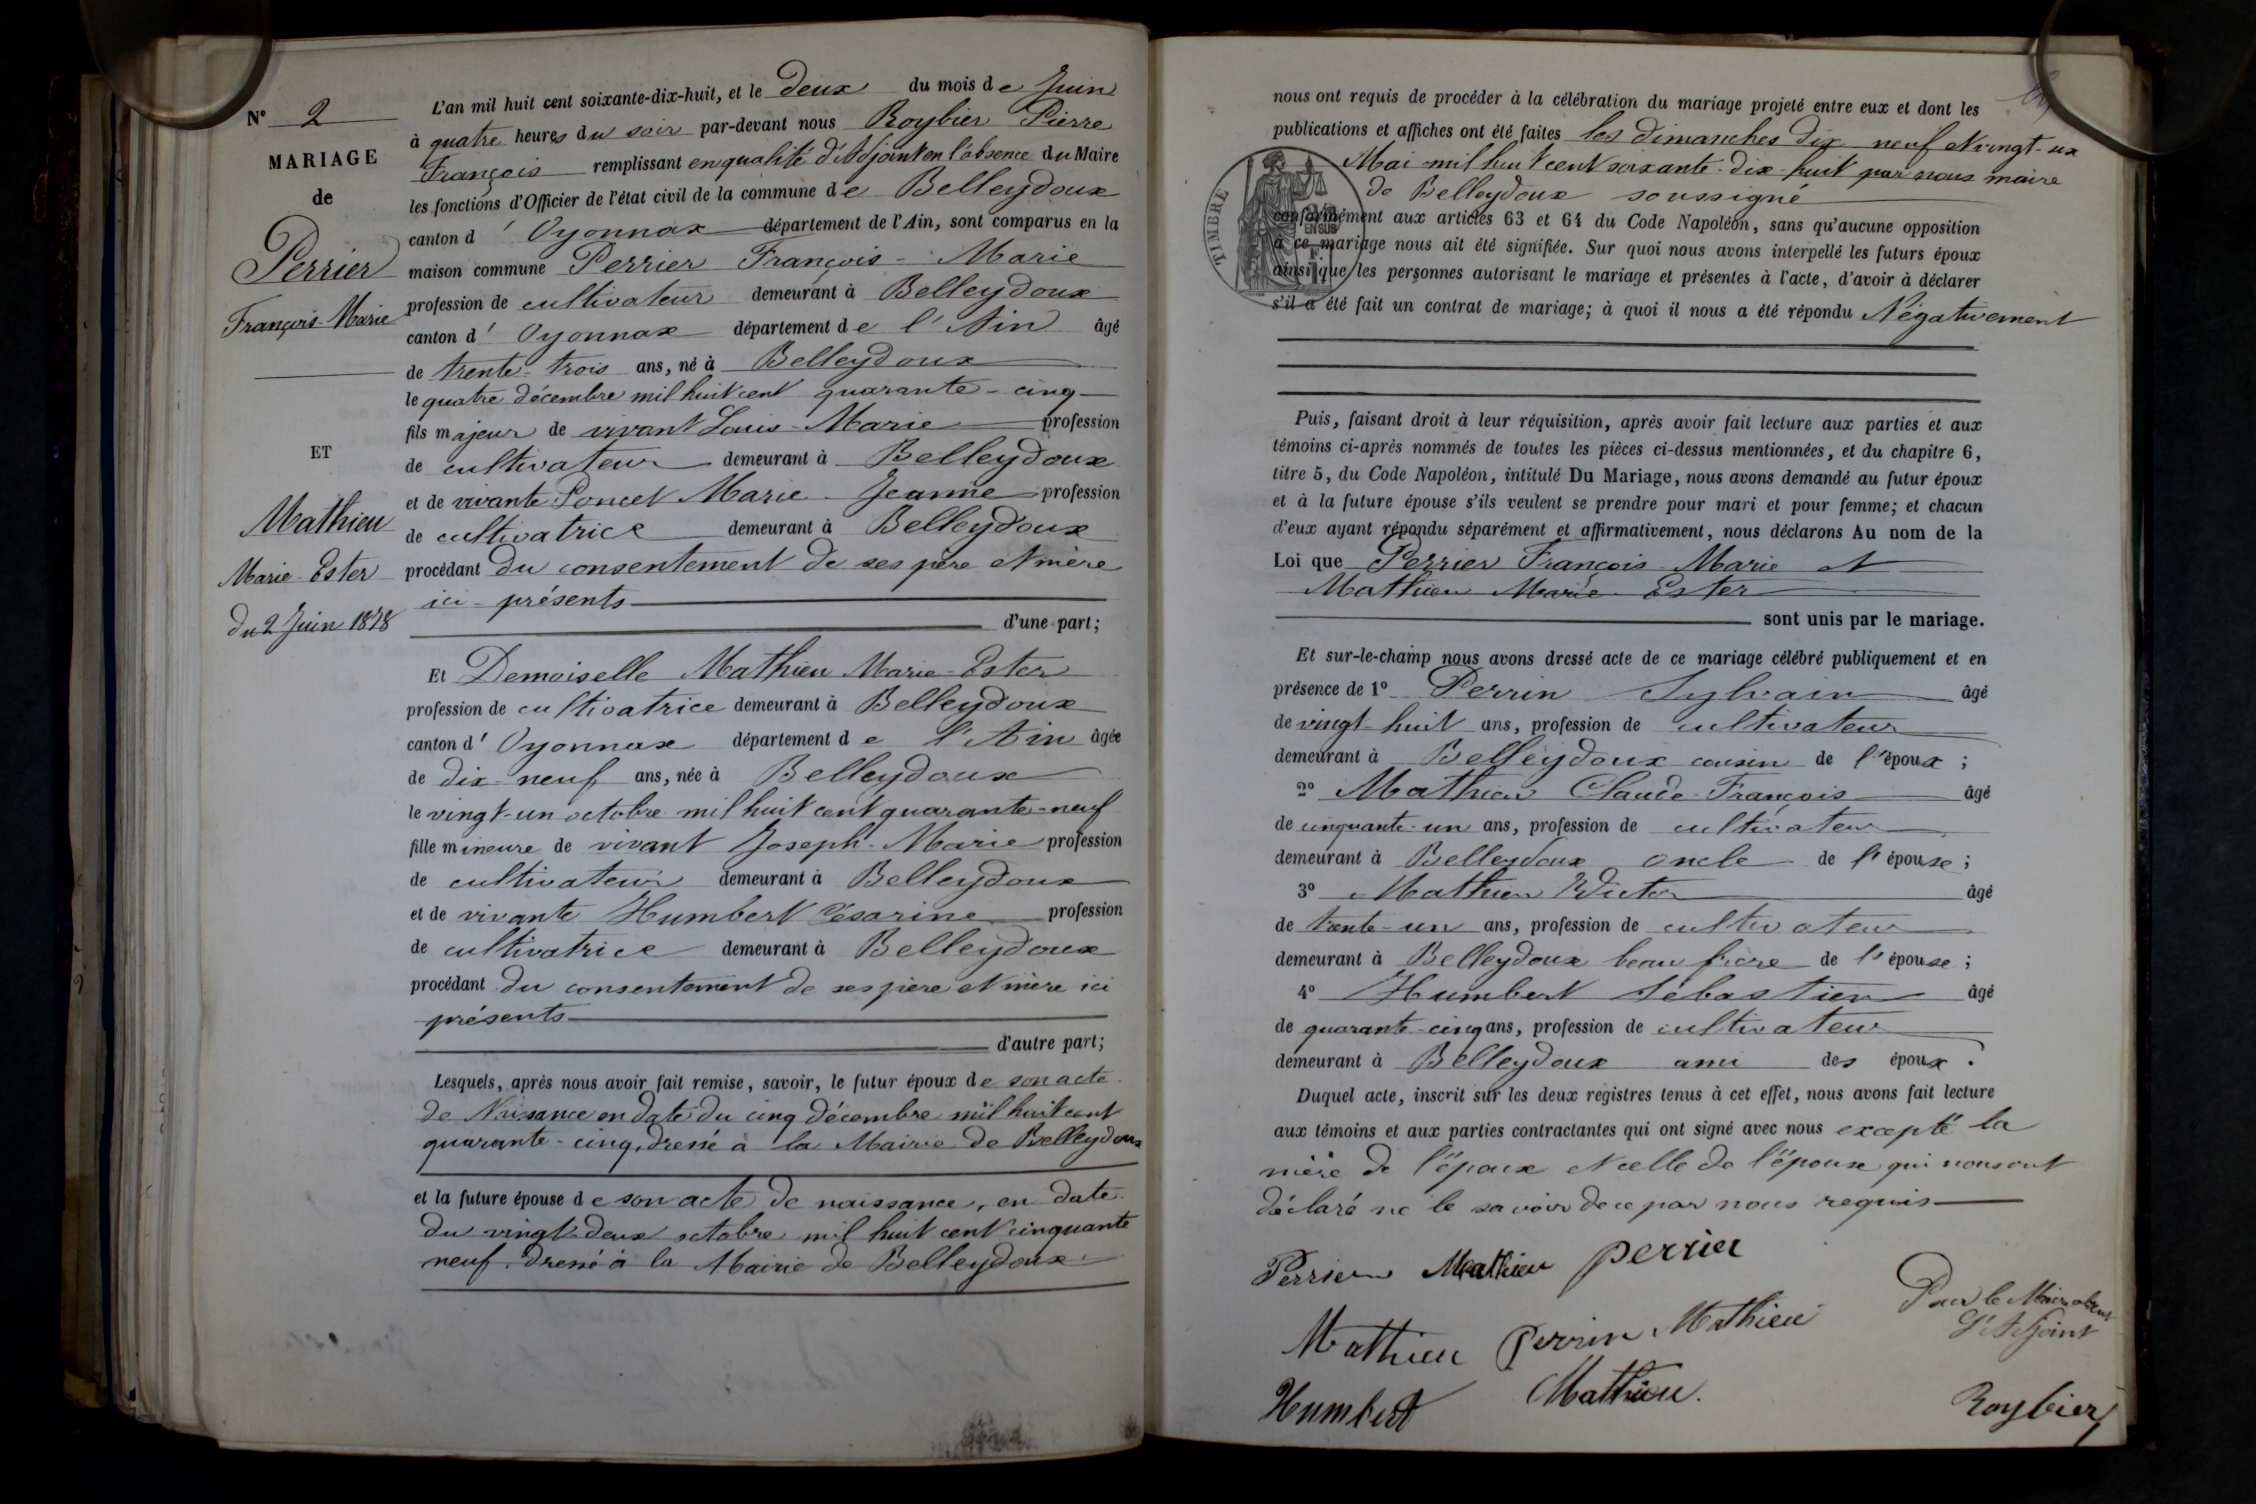 N° 2
MARIAGE
de
Perrier
François-Marie
ET
Mathieu
Marie-Ester
du 2 Juin 1878
L'an mil huit cent soixante-dix-huit, et le deux du mois de Juin
à quatre heures du soir par-devant nous Roybier Pierre
François remplissant en qualité d'Adjoint en l'absence du Maire
les fonctions d'Officier de l'état civil de la commune de Belleydoux
canton d' Oyonnax département de l'Ain, sont comparus en la
maison commune Perrier François-Marie
profession de cultivateur demeurant à Belleydoux
canton d' Oyonnax département de l'Ain âgé
de trente-trois ans, né à Belleydoux
le quatre décembre mil huit cent quarante-cinq
fils majeur de vivant Louis-Marie profession
de cultivateur demeurant à Belleydoux
et de vivante Poncet Marie-Jeanne profession
de cultivatrice demeurant à Belleydoux
procédant du consentement de ses père et mère
ici présents
d'une part;
Et Demoiselle Mathieu Marie-Ester
profession de cultivatrice demeurant à Belleydoux
canton d' Oyonnax département de l'Ain âgée
de dix-neuf ans, née à Belleydoux
le vingt-un octobre mil huit cent quarante-neuf
fille mineure de vivant Joseph-Marie profession
de cultivateur demeurant à Belleydoux
et de vivante Humbert Césarine profession
de cultivatrice demeurant à Belleydoux
procédant du consentement de ses père et mère ici
présents
d'autre part;
Lesquels, après nous avoir fait remise, savoir, le futur époux de son acte
de Naissance en date du cinq décembre mil huit cent
quarante-cinq, dressé à la Mairie de Belleydoux
et la future épouse de son acte de naissance, en date
du vingt-deux octobre mil huit cent cinquante
neuf, dressé à la Mairie de Belleydoux
nous ont requis de procéder à la célébration du mariage projeté entre eux et dont les
publications et affiches ont été faites les dimanches dix-neuf et vingt-six
Mai mil huit cent soixante-dix-huit par nous maire
de Belleydoux soussigné
TIMBRE
EN SUS
conformément aux articles 63 et 64 du Code Napoléon, sans qu'aucune opposition
à ce mariage nous ait été signifiée. Sur quoi nous avons interpellé les futurs époux
ainsi que les personnes autorisant le mariage et présentes à l'acte, d'avoir à déclarer
s'il a été fait un contrat de mariage; à quoi il nous a été répondu Négativement
Puis, faisant droit à leur réquisition, après avoir fait lecture aux parties et aux
témoins ci-après nommés de toutes les pièces ci-dessus mentionnées, et du chapitre 6,
titre 5, du Code Napoléon, intitulé Du Mariage, nous avons demandé au futur époux
et à la future épouse s'ils veulent se prendre pour mari et pour femme; et chacun
d'eux ayant répondu séparément et affirmativement, nous déclarons Au nom de la
Loi que Perrier François-Marie et
Mathieu Marie-Ester
sont unis par le mariage.
Et sur-le-champ nous avons dressé acte de ce mariage célébré publiquement et en
présence de 1° Perrin Sylvain âgé
de vingt-huit ans, profession de cultivateur
demeurant à Belleydoux cousin de l'époux ;
2° Mathieu Claude-François âgé
de cinquante-un ans, profession de cultivateur
demeurant à Belleydoux oncle de l'épouse ;
3° Mathieu Victor âgé
de trente-un ans, profession de cultivateur
demeurant à Belleydoux beau frère de l'épouse ;
4° Humbert Sébastien âgé
de quarante-cinq ans, profession de cultivateur
demeurant à Belleydoux ami des époux.
Duquel acte, inscrit sur les deux registres tenus à cet effet, nous avons fait lecture
aux témoins et aux parties contractantes qui ont signé avec nous excepté la
mère de l'époux et celle de l'épouse qui nous ont
déclaré ne le savoir de ce par nous requis
Perrier Mathieu Perrier
Mathieu Perrin Mathieu
Pour le Maire absent
L'Adjoint
Humbert Mathieu.
Roybier